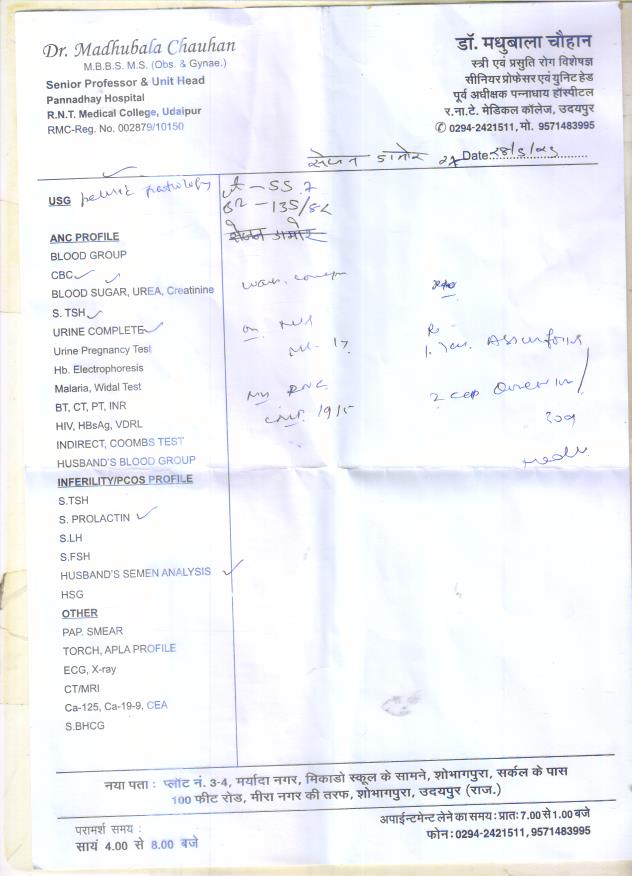 Dr. Madhubala Chauhan
M.B.B.S. M.S. (Obs. & Gynae.)
Senior Professor & Unit Head
Pannadhay Hospital
R.N.T. Medical College, Udaipur
RMC-Reg. No. 002879/10150
डॉ. मधुबाला चौहान
स्त्री एवं प्रसुति रोग विशेषज्ञ
सीनियर प्रोफेसर एवं युनिट हेड
पूर्व अधीक्षक पन्नाधाय हॉस्पीटल
र.ना.टे. मेडिकल कॉलेज, उदयपुर
✆ 0294-2421511, मो. 9571483995
डामोर Date
USG pelvic pathology
wt - 55.7
BP - 135/82
ANC PROFILE
BLOOD GROUP
CBC
BLOOD SUGAR, UREA, Creatinine
S. TSH
URINE COMPLETE
Urine Pregnancy Test
Hb. Electrophoresis
Malaria, Widal Test
BT, CT, PT, INR
HIV, HBsAg, VDRL
INDIRECT, COOMBS TEST
HUSBAND'S BLOOD GROUP
19/5
INFERILITY/PCOS PROFILE
S.TSH
S. PROLACTIN
S.LH
S.FSH
HUSBAND'S SEMEN ANALYSIS
HSG
OTHER
PAP. SMEAR
TORCH, APLA PROFILE
ECG, X-ray
CT/MRI
Ca-125, Ca-19-9, CEA
S.BHCG
नया पता : प्लॉट नं. 3-4, मर्यादा नगर, मिकाडो स्कूल के सामने, शोभागपुरा, सर्कल के पास
100 फीट रोड, मीरा नगर की तरफ, शोभागपुरा, उदयपुर (राज.)
परामर्श समय :
सायं 4.00 से 8.00 बजे
अपाईन्टमेन्ट लेने का समय : प्रातः 7.00 से 1.00 बजे
फोन : 0294-2421511, 9571483995